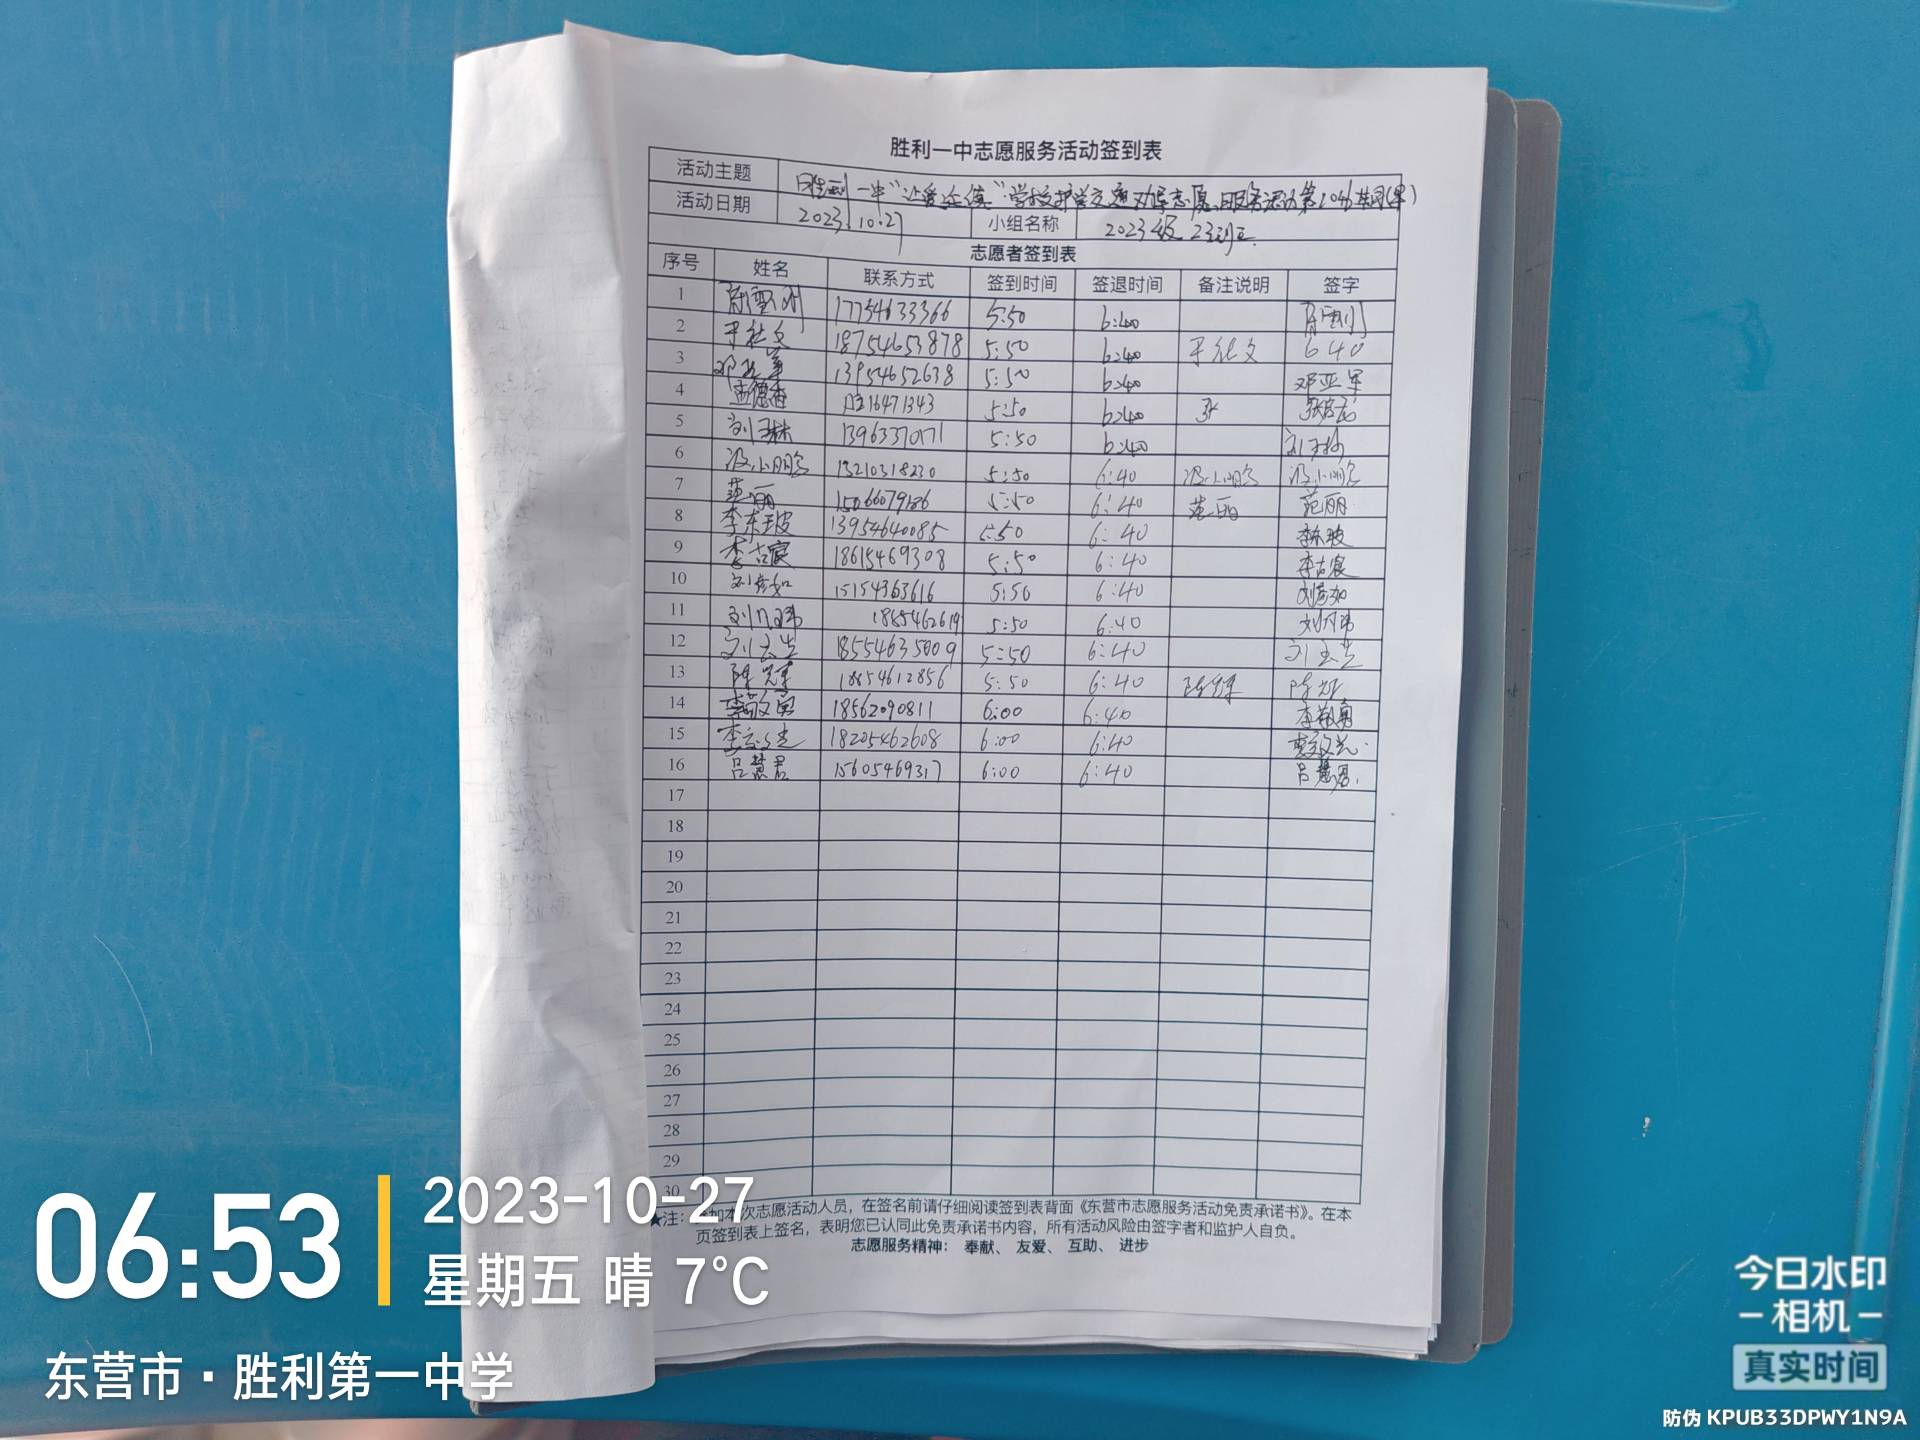 胜利一中志愿服务活动签到表
活动主题 胜利一中"让爱连续"学校护学交通劝导志愿服务活动第
活动日期 2023.10.27 小组名称 2023级23班
志愿者签到表
序号 姓名 联系方式 签到时间 签退时间 备注说明 签字
1 17754633366 5:50 6:40
2 于社文 18754653878 5:50 6:40 于社文 640
3 邓亚军 13954652638 5:50 6:40 邓亚军
4 孟德香 5:50 6:40
5 刘玉林 13963370171 5:50 6:40 刘玉林
6 15210318230 5:50 6:40
7 范丽 15066079186 5:50 6:40 范丽 范丽
8 李东玻 13954640085 5:50 6:40 李东玻
9 李吉宸 18615469308 5:50 6:40 李吉宸
10 刘彦如 15154363616 5:50 6:40 刘彦如
11 1885462619 5:50 6:40
12 18554635009 5:50 6:40
13 18654612856 5:50 6:40
14 李敬勇 18562090811 6:00 6:40 李敬勇
15 18205462608 6:00 6:40
16 吕慧君 15605469317 6:00 6:40 吕慧君
17
18
19
20
21
22
23
24
25
26
27
28
29
30
★注：参加本次志愿活动人员，在签名前请仔细阅读签到表背面《东营市志愿服务活动免责承诺书》。在本
页签到表上签名，表明您已认同此免责承诺书内容，所有活动风险由签字者和监护人自负。
志愿服务精神： 奉献、 友爱、 互助、 进步
06:53
2023-10-27
星期五 晴 7°C
东营市·胜利第一中学
今日水印
相机
真实时间
防伪 KPUB33DPWY1N9A